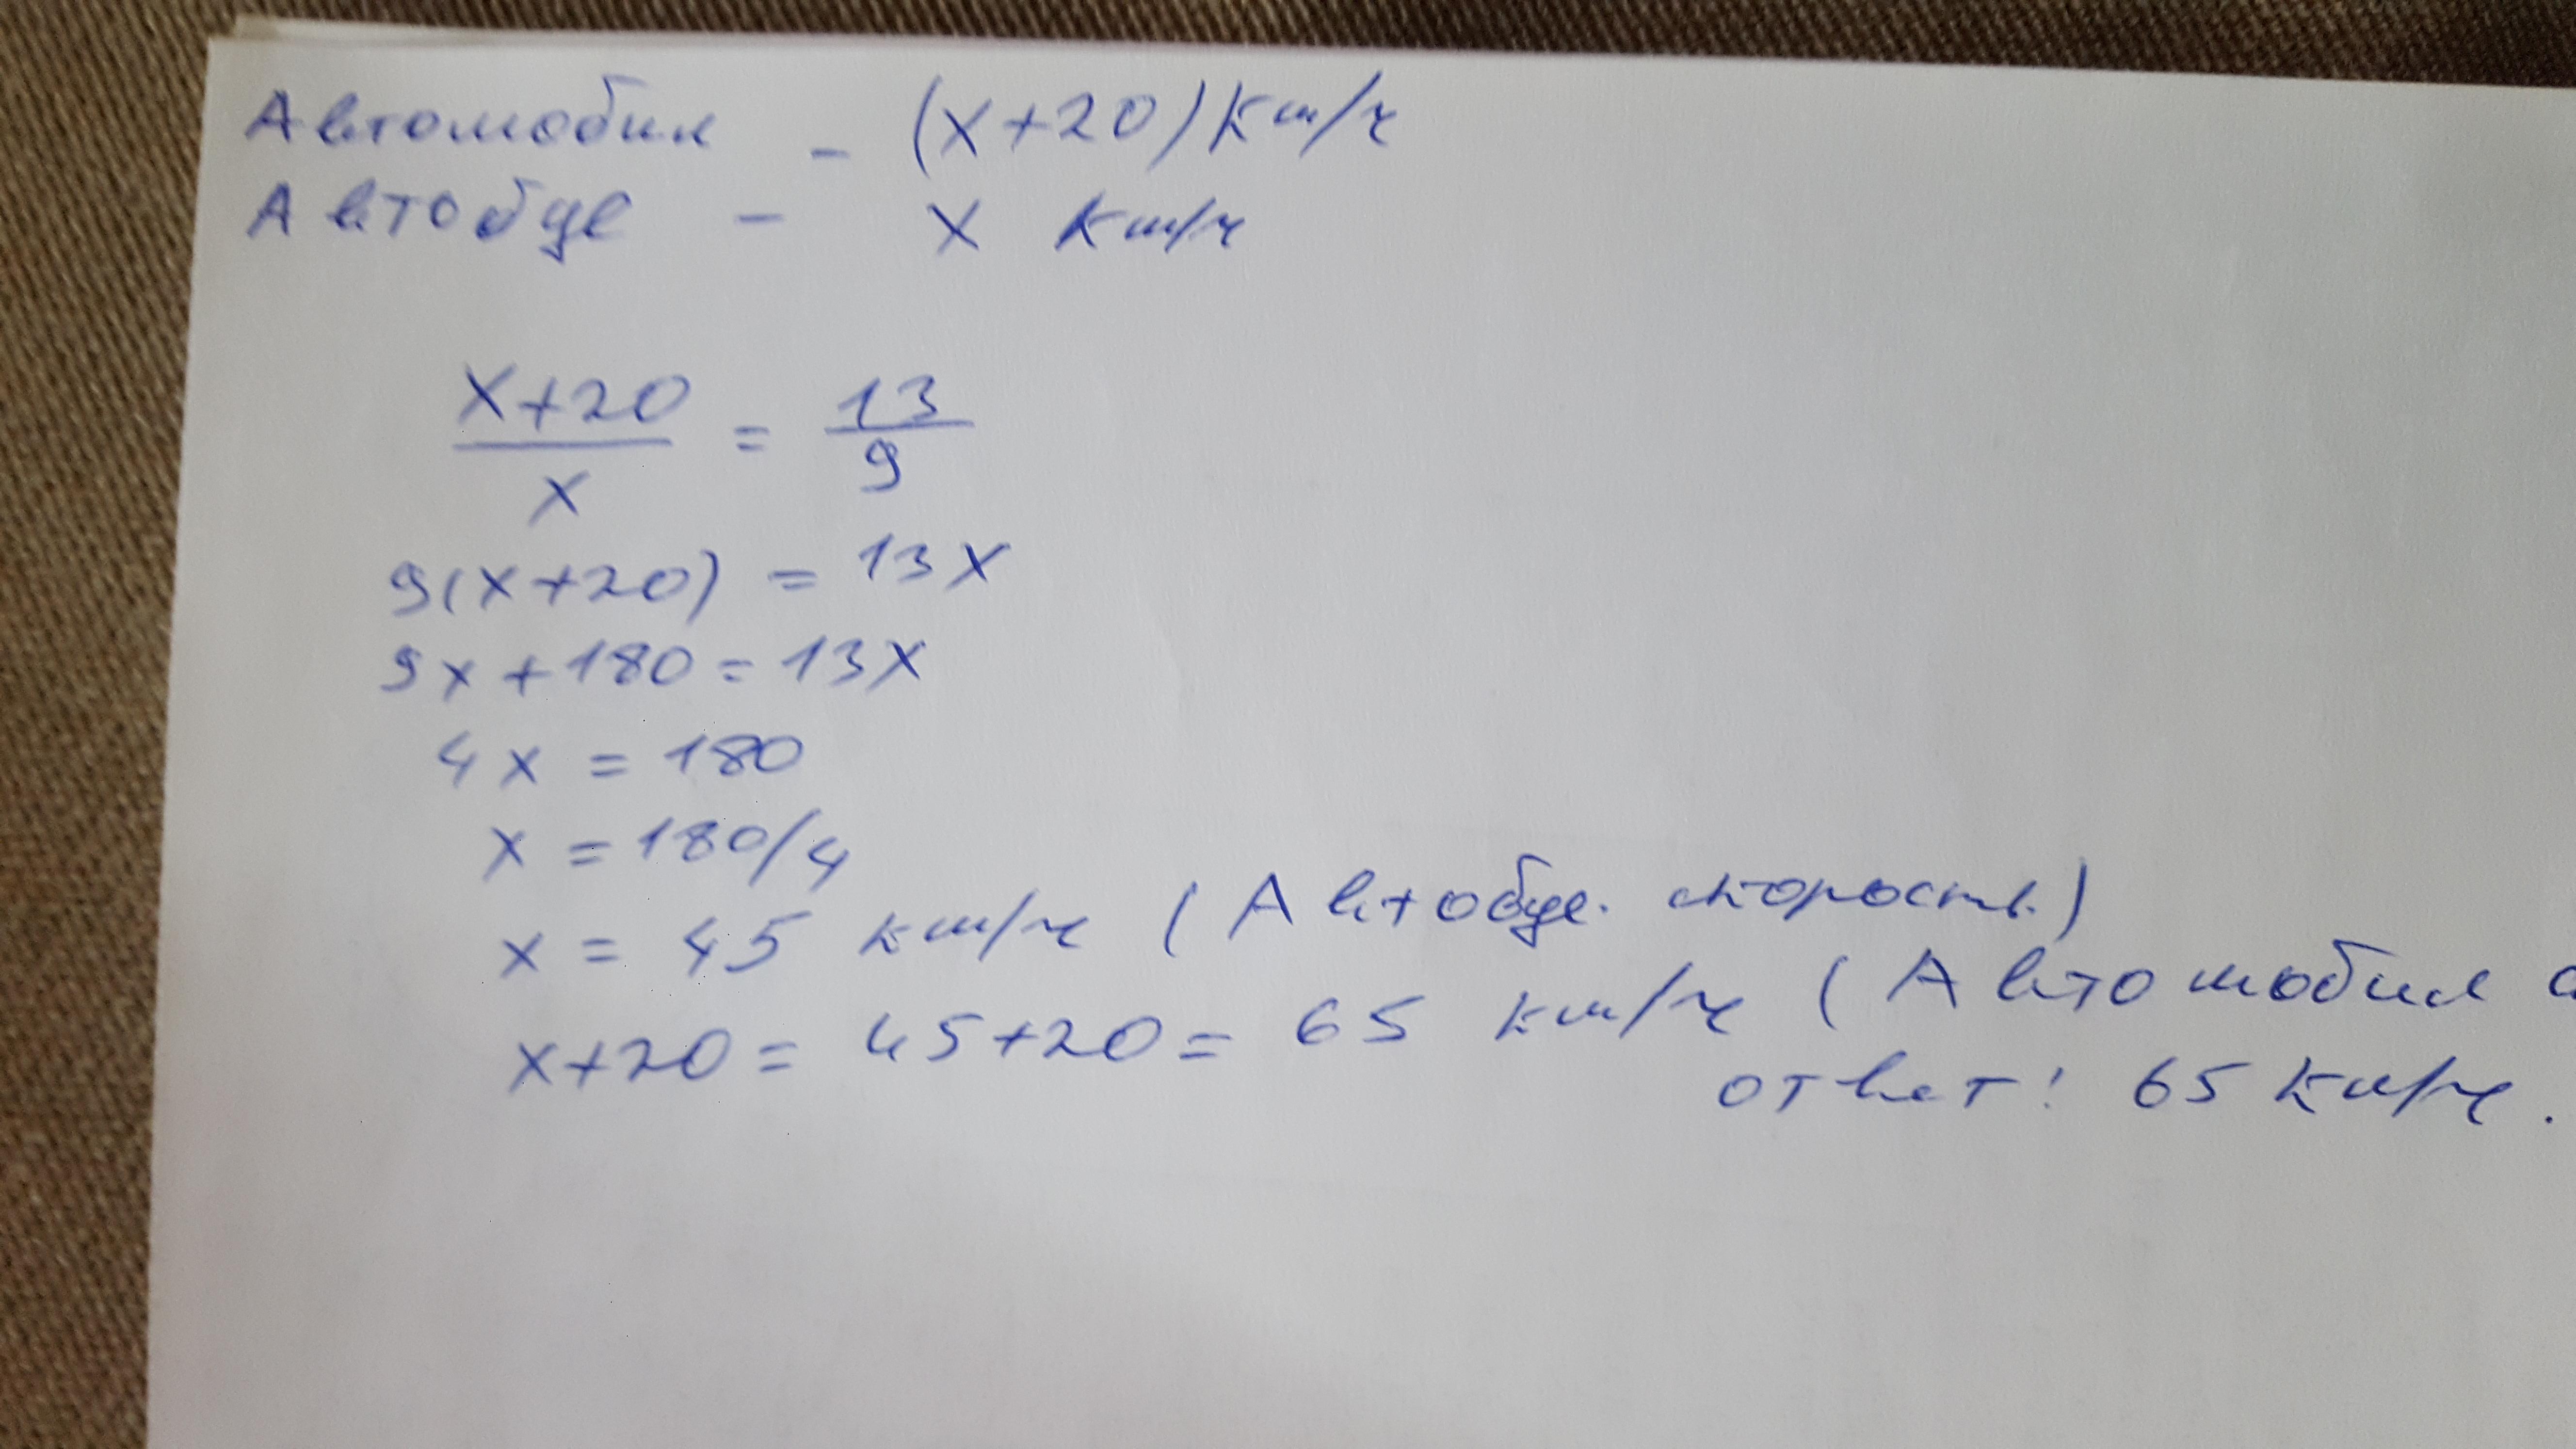 Автомобил - (x+20) км/ч
Автобус - x км/ч
x+20 / x = 13 / 9
9(x+20) = 13x
9x+180=13x
4x = 180
x = 180/4
x = 45 км/ч (Автобус. скорость)
x+20= 45+20= 65 км/ч (Автомобил с
ответ! 65 км/ч.